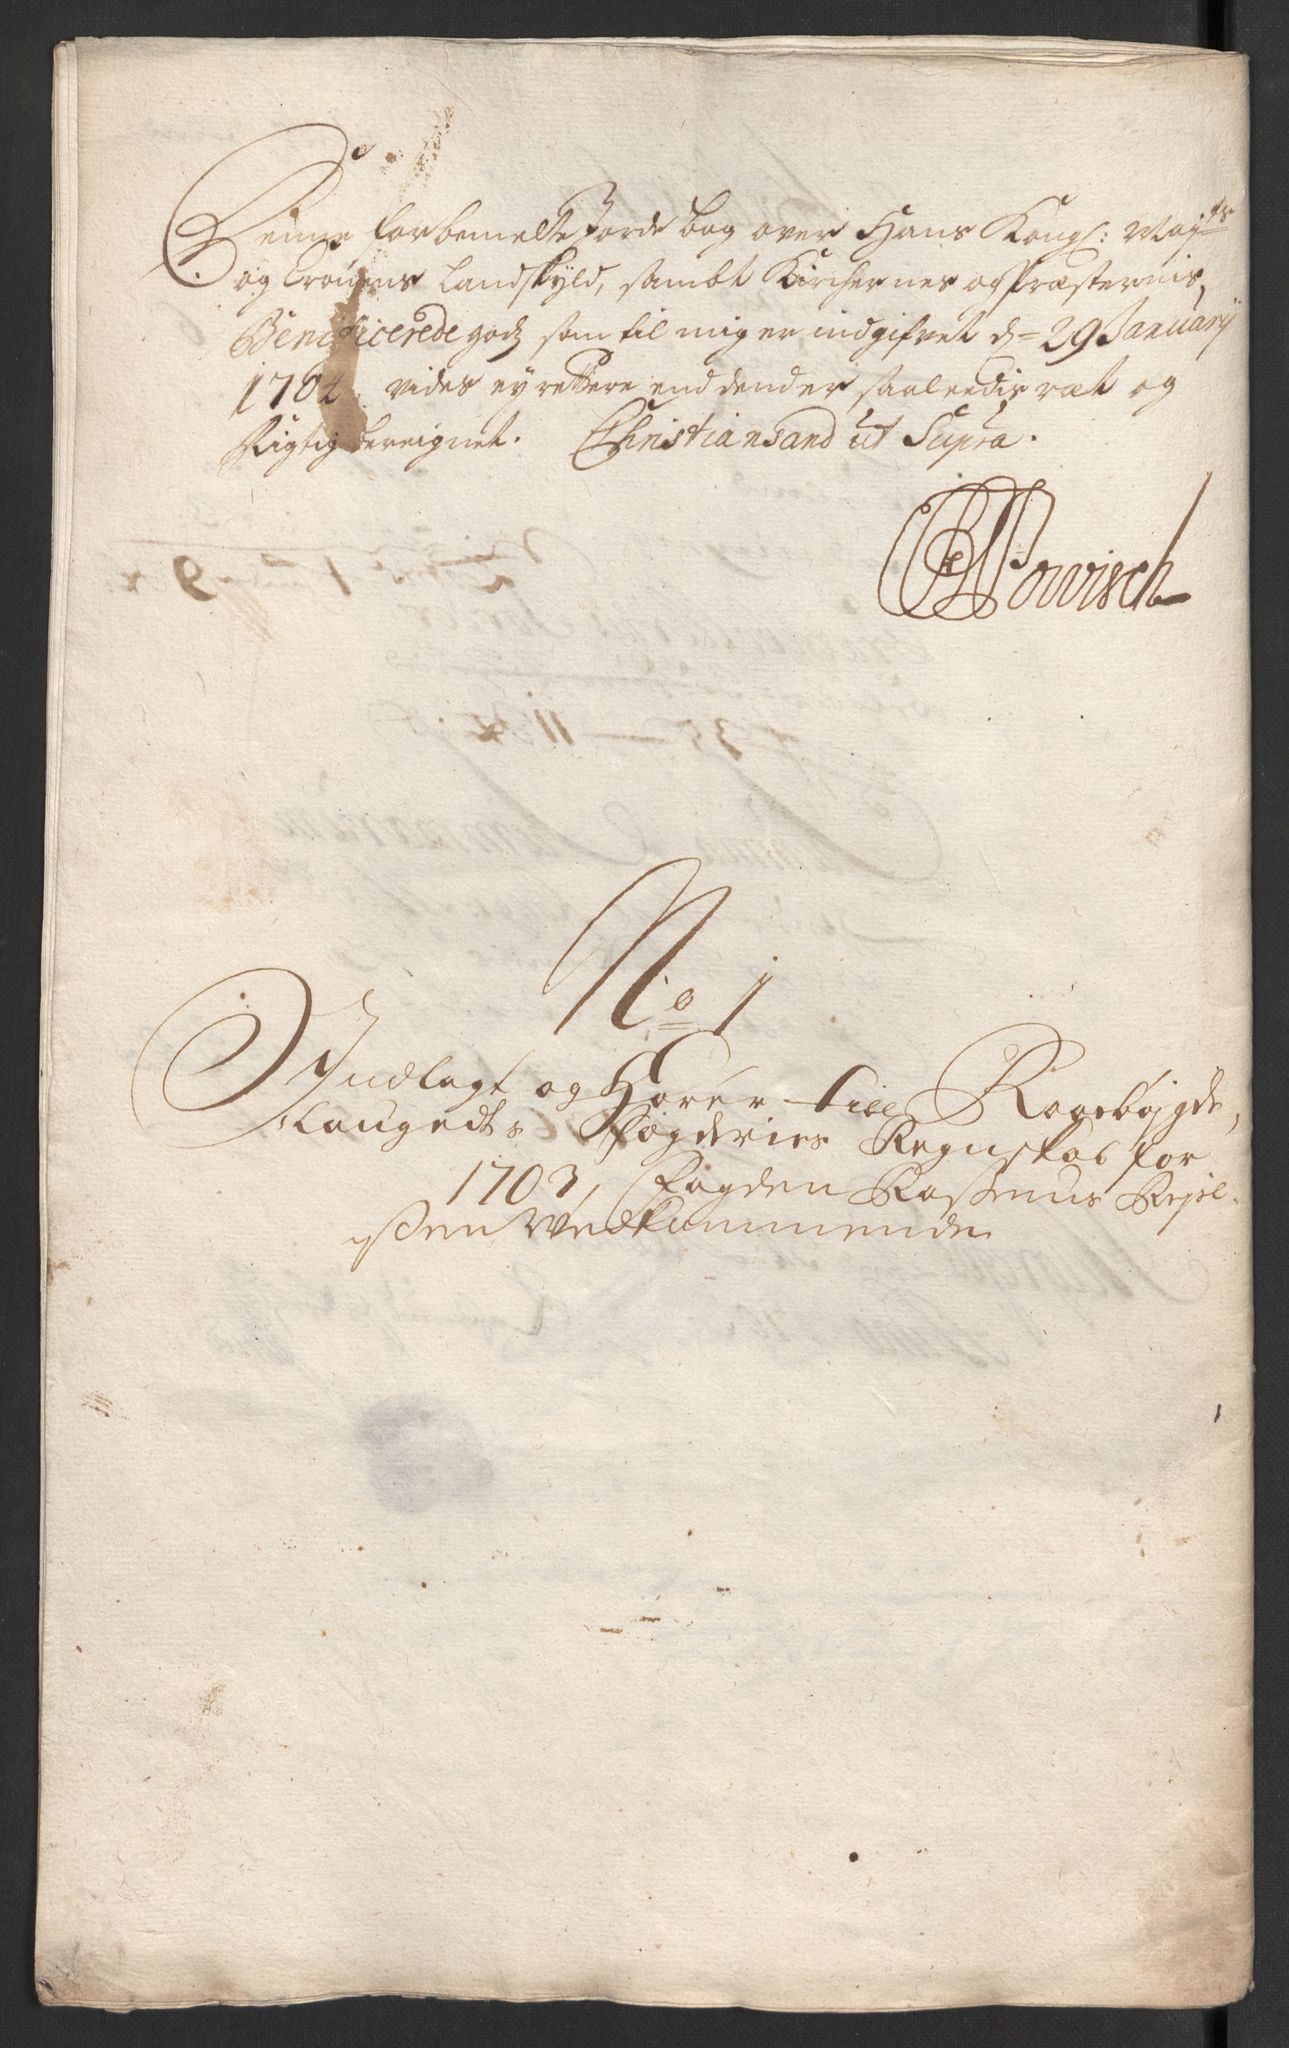 Denne forbemelte Jorde bog over Hans Kongl: Mayts
og Cronens Landskyld, sambt Kirchernes og Præsternis,
Beneficerede godz som til mig er indgifvet d= 29 January
1704. vides ey rettere end den der saaleedis ræt og
Rigtig bereignet. Christiansand ut Supra.
Powisch
No 1
Indlagt og Hører till Raabøjgde,
laugedts fogderies Regnskab for
1703, fogden Rasmus
ßen Vedkommende